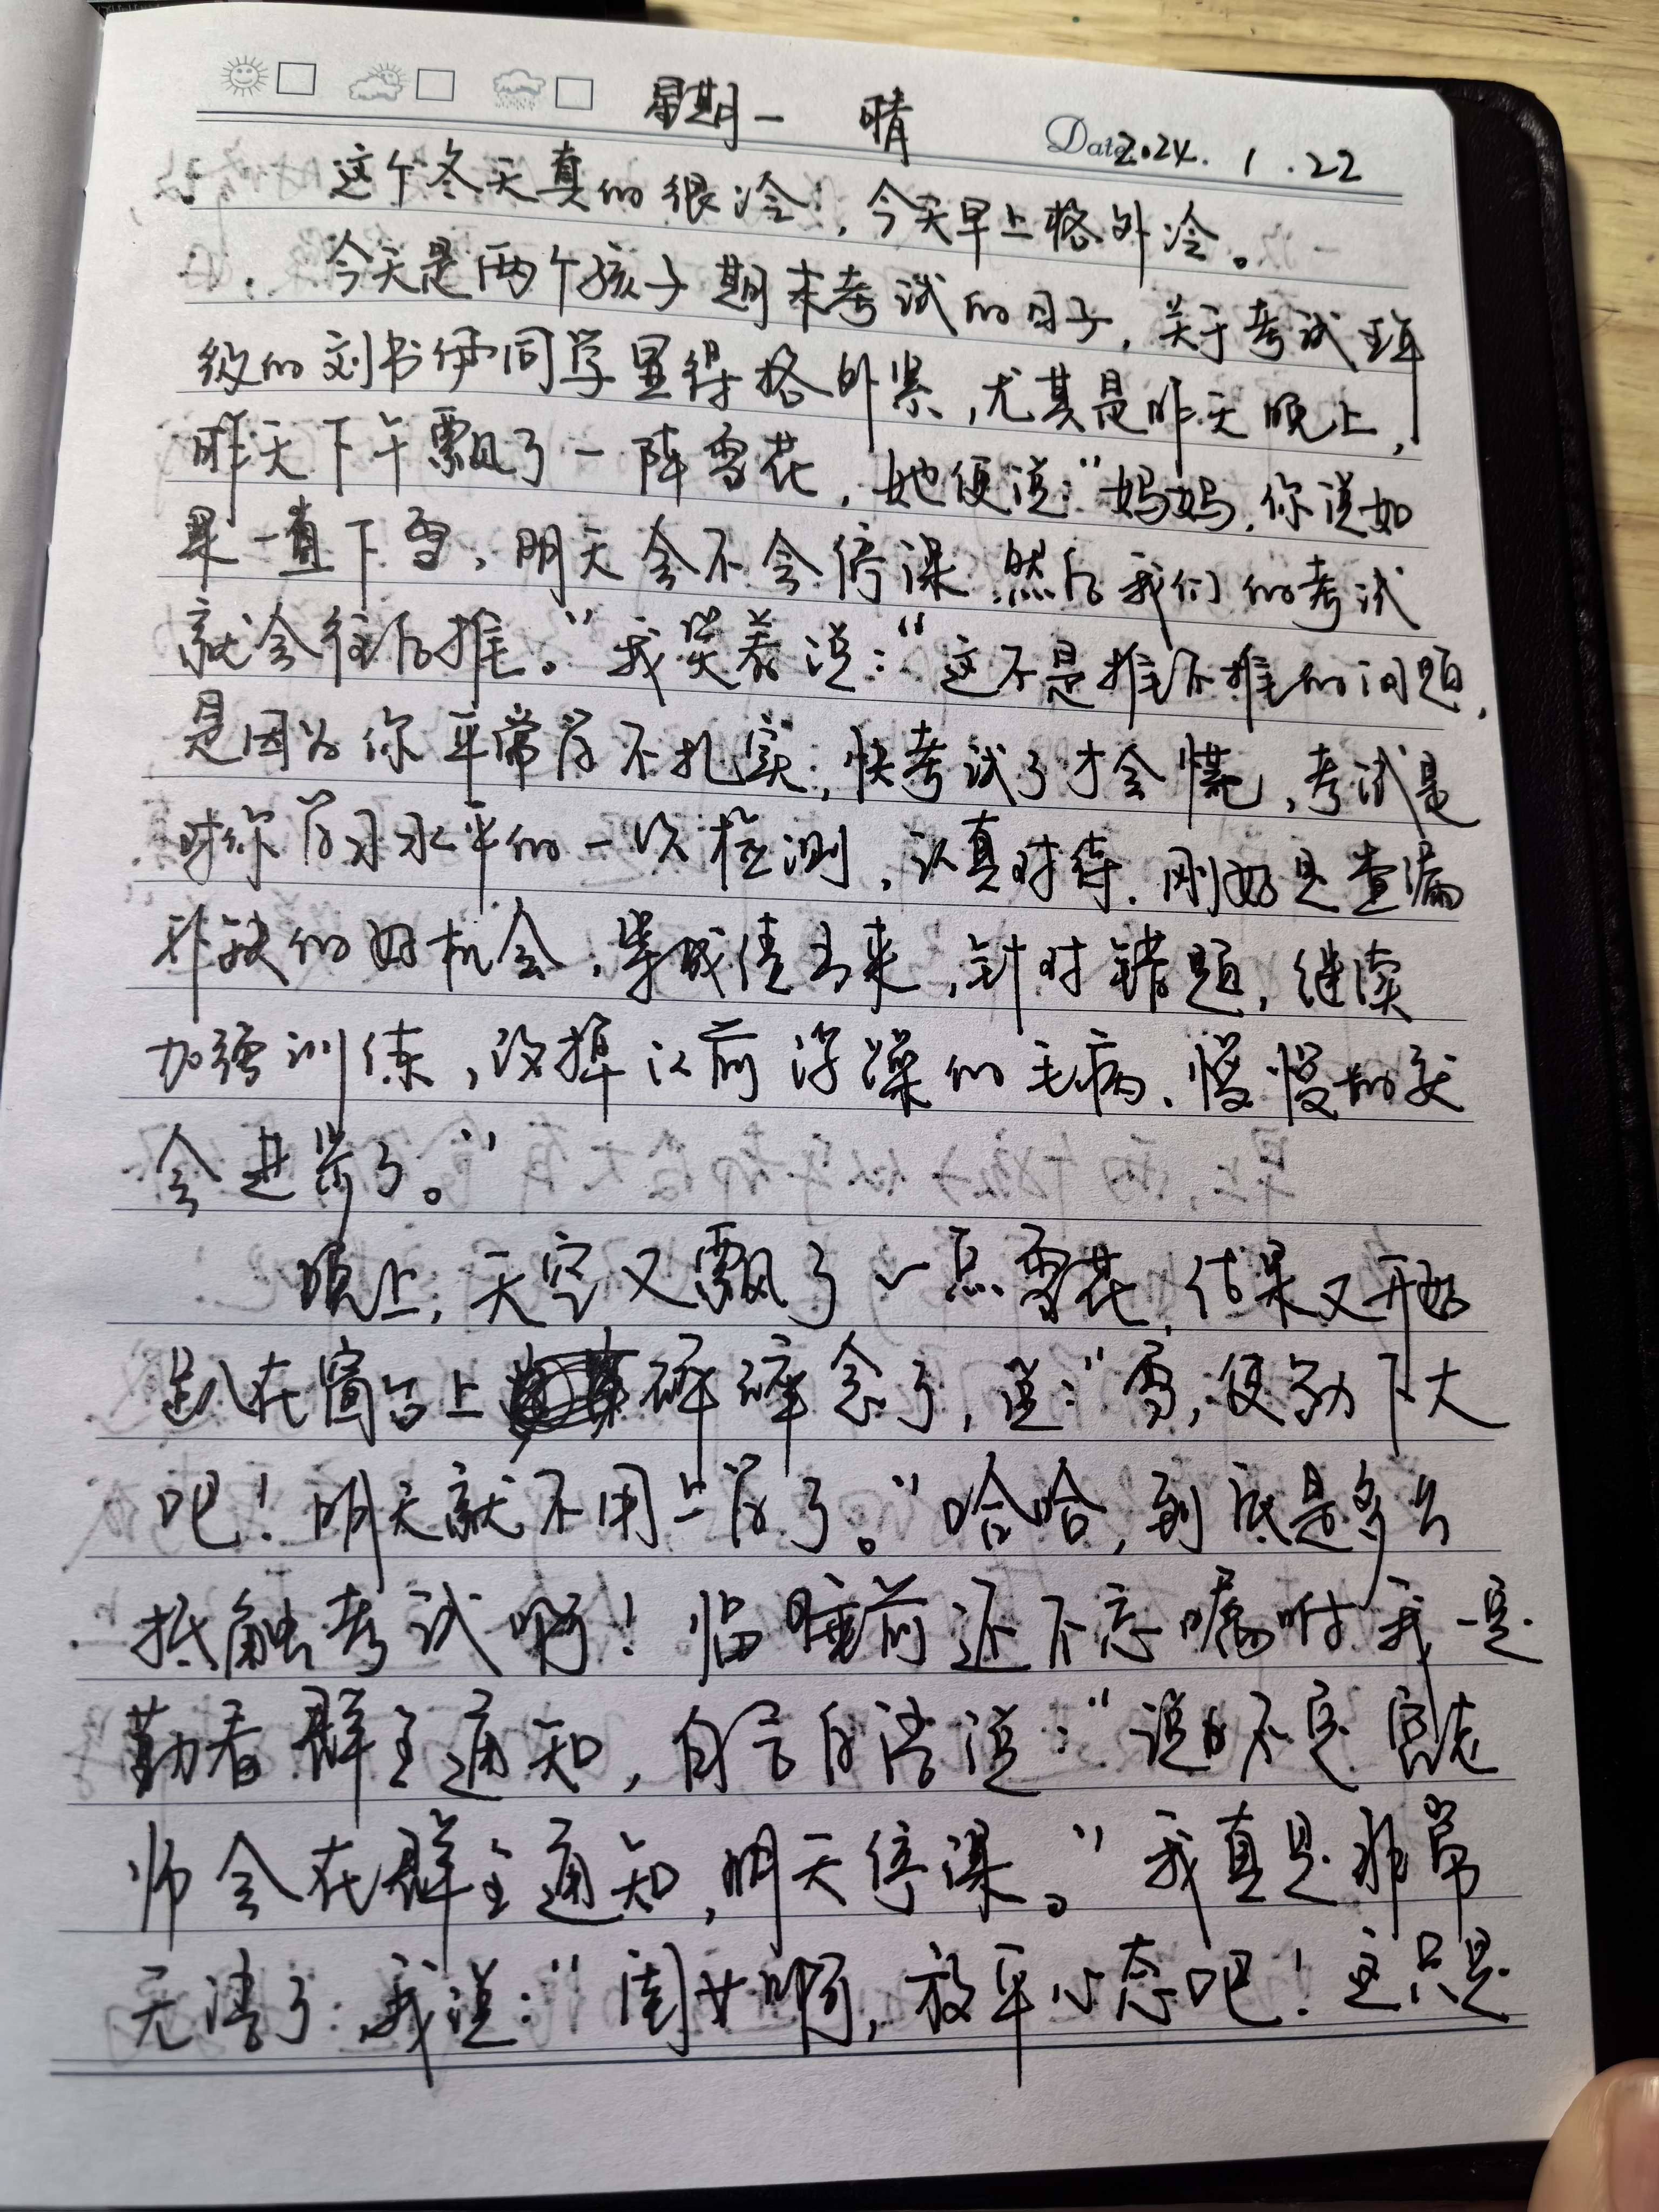 星期一 晴 Date 2024.1.22
这个冬天真的很冷,今天早上格外冷。
今天是两个孩子期末考试的日子,关于考试
级的刘书伊同学显得格外紧,尤其是昨天晚上,
昨天下午飘了一阵雪花,她便说:“妈妈,你说如
果一直下雪,明天会不会停课,然后我们的考试
就会往后推。”我笑着说:“这不是推不推的问题,
是因为你平常学不扎实,快考试了才会慌,考试是
对你学习水平的一次检测,认真对待,刚好是查漏
补缺的好机会,等成绩出来,针对错题,继续
加强训练,改掉以前浮躁的毛病,慢慢的就
会进步了。”
晚上,天空又飘了一点雪花,结果又开始
趴在窗台上碎碎念了,说:“雪,使劲下大
吧!明天就不用上学了。”哈哈,到底是多么
抵触考试啊!临睡前还不忘嘱咐我一定
勤看群里通知,自言自语说:“说不定宫老
师会在群里通知,明天停课。”我真是非常
无语了,我说:“闺女啊,放平心态吧!这只是